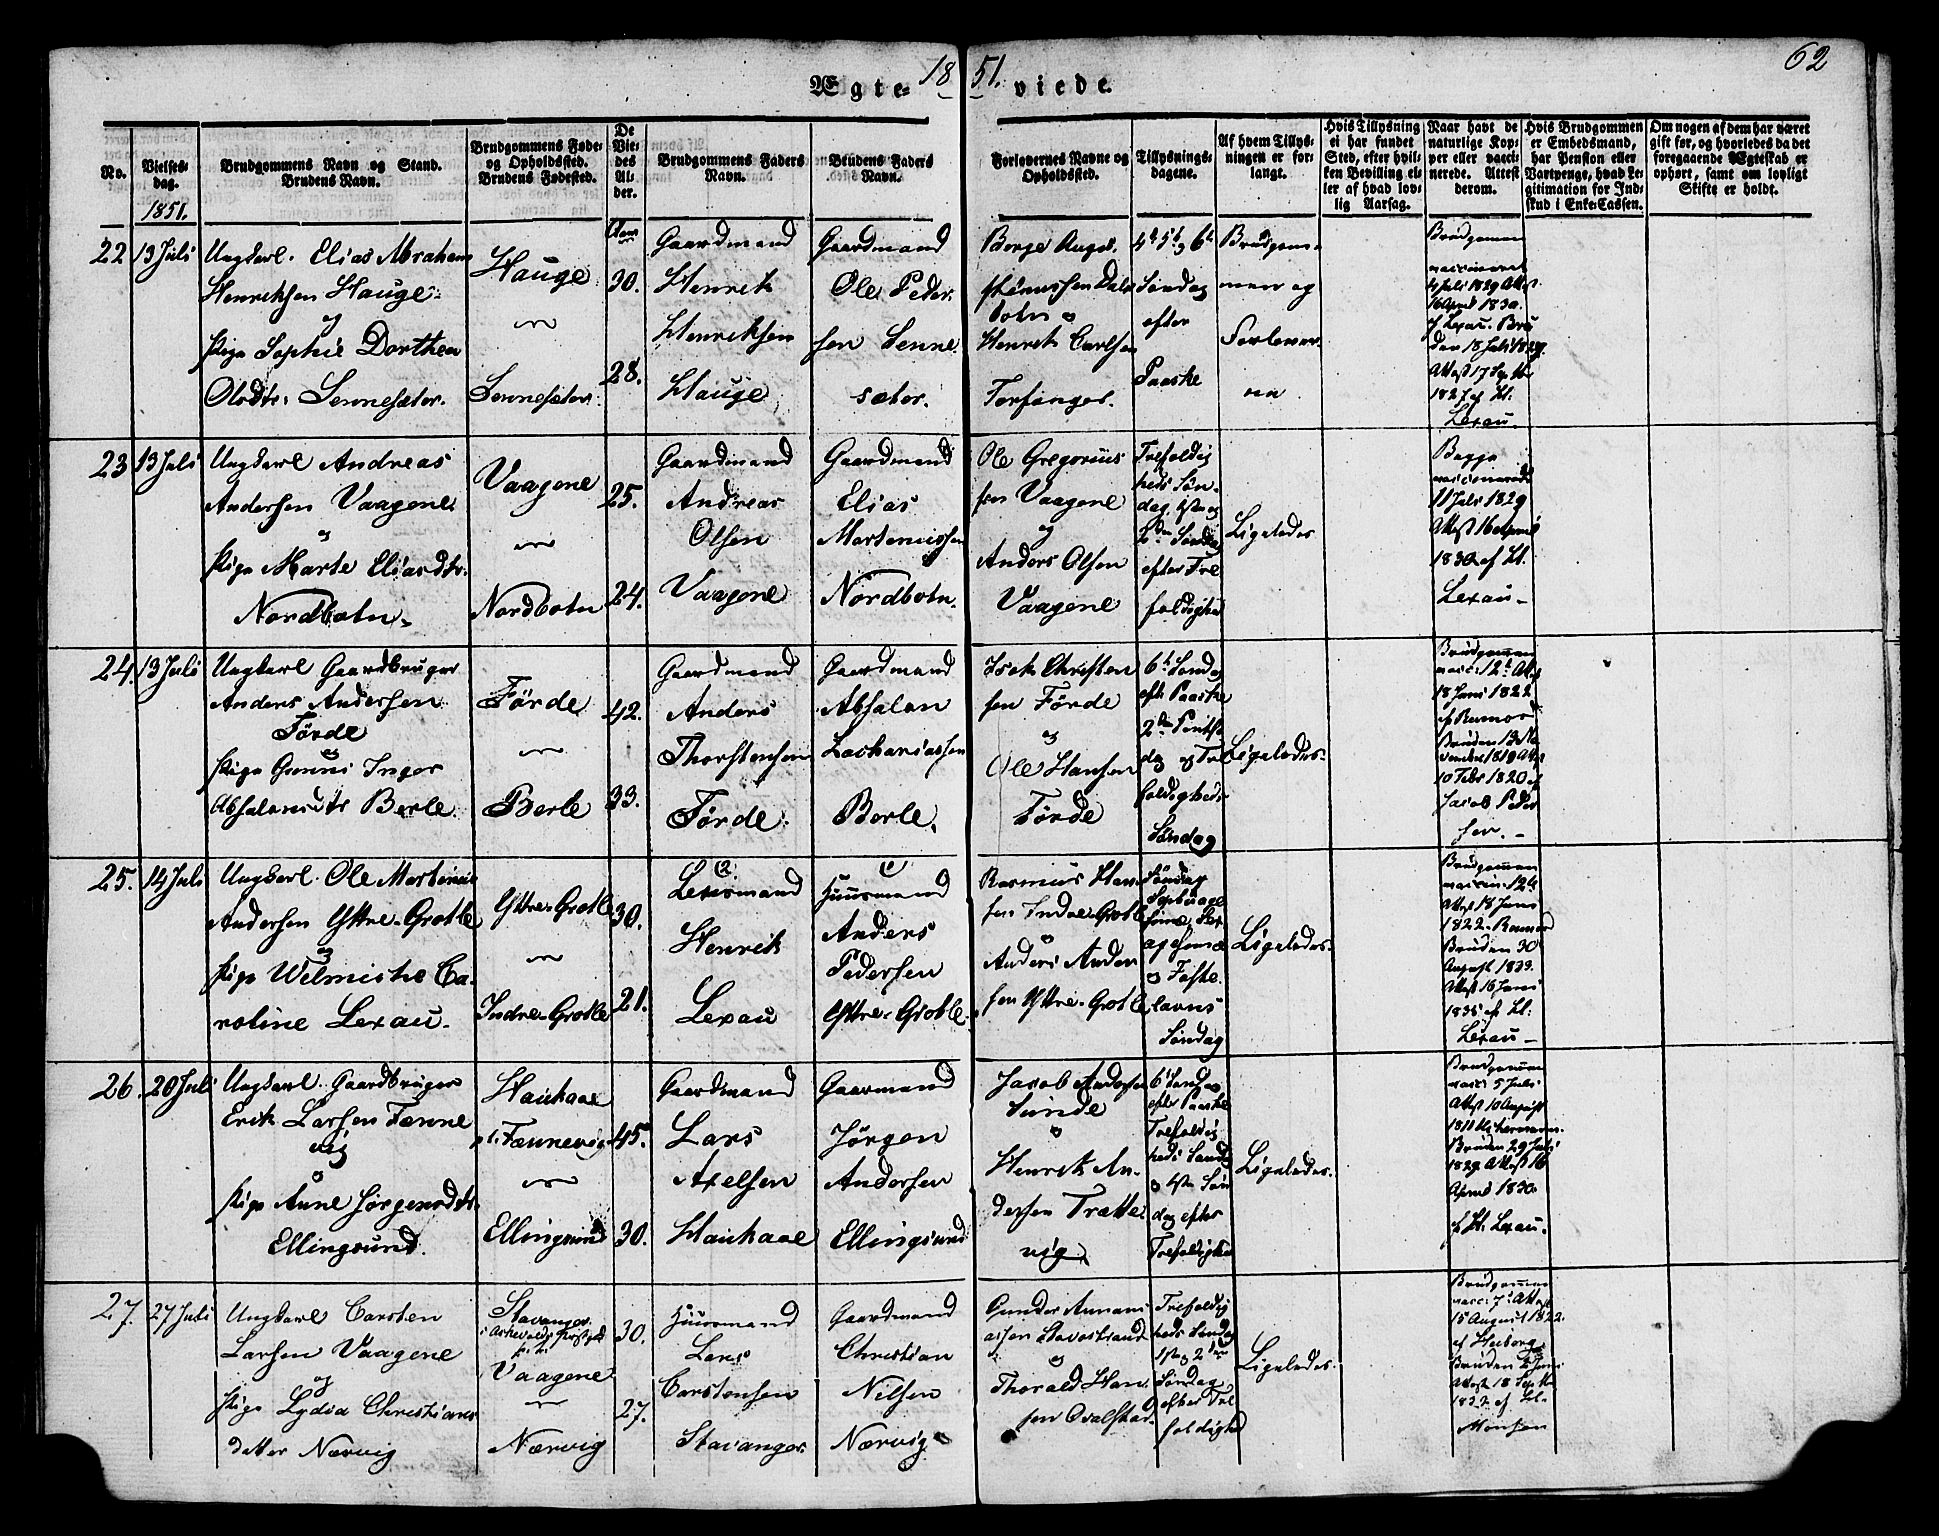 1851.
62
Ægteviede.
No.
Vielses-
dag.
1851.
Brudgommens Navn og Stand.
Brudens Navn.
Brudgommens Føde-
og Opholdssted.
Brudens Fødested.
De
Vie-
des
Al-
der.
Brudgommens Faders
Navn.
Brudens Faders
Navn.
Forlovernes Navne og
Opholdssted.
Tillysnings-
dagene.
Af hvem Tillys-
ningen er for-
langt.
Hvis Tillysning
ei har fundet
Sted, efter hvil-
ken Bevilling el-
ler af hvad lov-
lig Aarsag.
Naar havt de
naturlige Kop-
per eller vacci-
nerede. Attest
derom.
Hvis Brudgommen
er Embedsmand,
har Pension eller
Vartpenge, hvad Le-
gitimation for Ind-
skud i Enke-Cassen.
Om nogen af dem har været
gift før, og hvorledes da det
foregaaende Ægteskab er
ophørt, samt om lovligt
Skifte er holdt.
22
13 Juli
Ungkarl. Elias Abraham
Henriksen Hauge
og
Pige Sophie Dorthea
Olsdtr. Sennesæter.
Hauge
Sennesæter.
Aar
30.
28.
Gaardmand
Henrik
Henriksen
Hauge
Gaardmand
Ole Peder
sen Senne
sæter.
Henrik Carlsen
Torfanger.
4de 5te og 6te
Søndag
efter
Paaske
Brudgom-
men og
Forlover-
ne
Brudgommen
vaccineret
4 Juli 1829 Attest
16 April 1830
af Lexau. Bru
den 18 Juli 1827
Attest 17 Septbr
1827 af Kl.
Lexau.
23
13 Juli
Ungkarl Andreas
Andersen Vaagene
og
Pige Marte Eliasdtr.
Nordbotn.
Vaagene
Nordbotn
25.
24.
Gaardmand
Andreas
Olsen
Vaagene
Gaardmand
Elias
Martinussen
Nordbotn.
Ole Gregorius
sen Vaagene
og
Anders Olsen
Vaagene
Trefoldig
heds Søn-
dag, 1ste og
2den Søndag
efter Tre
foldighed
Ligeledes
Begge
vaccinerede
11 Juli 1829
Attest 16 April
1830 af Kl.
Lexau
24.
13 Juli
Ungkarl Gaardbruger
Anders Andersen
Førde
og
Pige Inger
Absalonsdtr Berle.
Førde
Berle
42.
33.
Gaardmand
Anders
Thorstensen
Førde.
Gaardmand
Absalon
Zachariassen
Berle.
Isak Christen
sen Førde
og
Ole Hansen
Førde
6te Søndag
eft. Paaske
2den Pintse
dag og Tre
foldigheds
Søndag
Ligeledes.
Brudgommen
vacc. 12te Attest
18 Juni 1822
af Rumor
Bruden 13 No
vember 1819 Attest
10 Febr 1820 af
Jacob Peder
sen.
25.
14 Juli
Ungkarl. Ole Martinus
Andersen Yttre-Grotle
og
Pige Welmiche Ca-
roline Lexau.
Yttre-Grotle
Indre-Grotle
30.
21.
2
Lensmand
Henrik
Lexau
1
Huusmand
Anders
Pedersen
Yttre-Grotle.
Rasmus Han
sen Indre-Grotle
og
Anders Ander
sen Yttre-Grotle
Søndag
Septuage
simæ, Sex
agesimæ
og Faste
lavns
Søndag
Ligeledes.
Brudgommen
vaccin. 12te
Attest 18 Juni
1822. Rumor
Bruden 30
August 1833.
Attest 16 Juni
1835 af Kl.
Lexau
26.
20 Juli
Ungkarl. Gaardbruger
Erik Larsen Fænne
vig
og
Pige Anne Jørgensdtr.
Ellingsund.
Haukaae
p.t. Fænnevig
Ellingsund
45.
30.
Gaardmand
Lars
Axelsen
Haukaae
Gaarmand
Jørgen
Andersen
Ellingsund
Jacob Andersen
Sunde
og
Henrik An-
dersen Trætte
vig
6te Søndag
efter Paaske
Trefoldig
heds Søndag
og 1ste Søn
dag efter
Trefoldighed
Ligeledes.
Brudgommen
vacc. 5 Juli
Attest 10 August
1811
Bruden 29 Juli
1829 Attest 16
April 1830
af Kl. Lexau.
27.
27 Juli
Ungkarl Carsten
Larsen Vaagene
og
Pige Lydia Christians
datter Nærvig
Stavanger
i Askevolds Præstegjeld
p.t.
Vaagene
Nærvig
30.
27.
Huusmand
Lars
Carstensen
Stavanger
Gaardmand
Christian
Nilsen
Nærvig
Gunder Annani
assen Savostrand
og
Thorald Han
sen Ovalstad.
Trefoldig
heds Søndag
1ste og 2den
Søndag
efter Tre
foldighed
Ligeledes.
Brudgommen
vacc. 7de Attest
15 August 1822.
af Heiberg
Bruden 2 Juni
Attest 18 Septbr
1832 af Kl.
Monsen